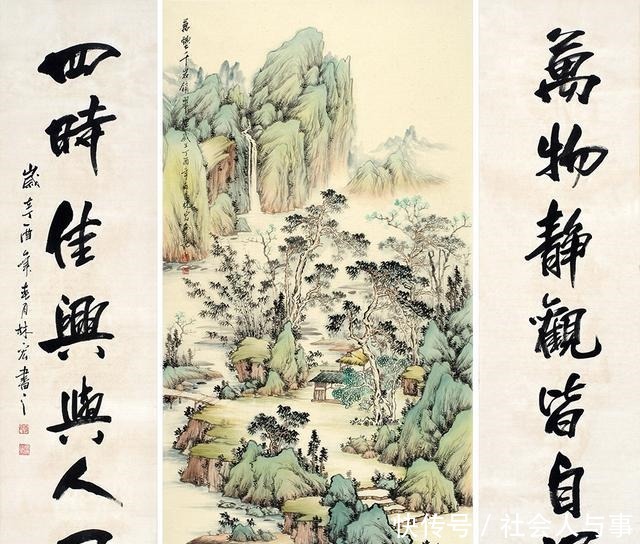 萬物静觀皆自
萬壑千岩
四時佳興與人
歲辛酉年春月林宏書之
快传号 / 社会人与事